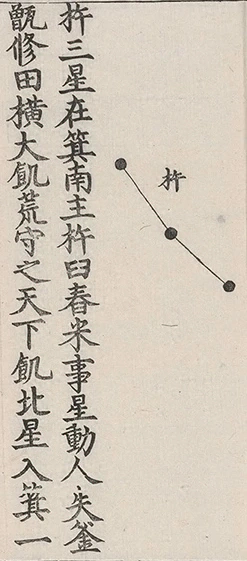 杵
杵三星在箕南主杵臼舂米事星動人失釜
甑修田橫大飢荒守之天下飢北星入箕一